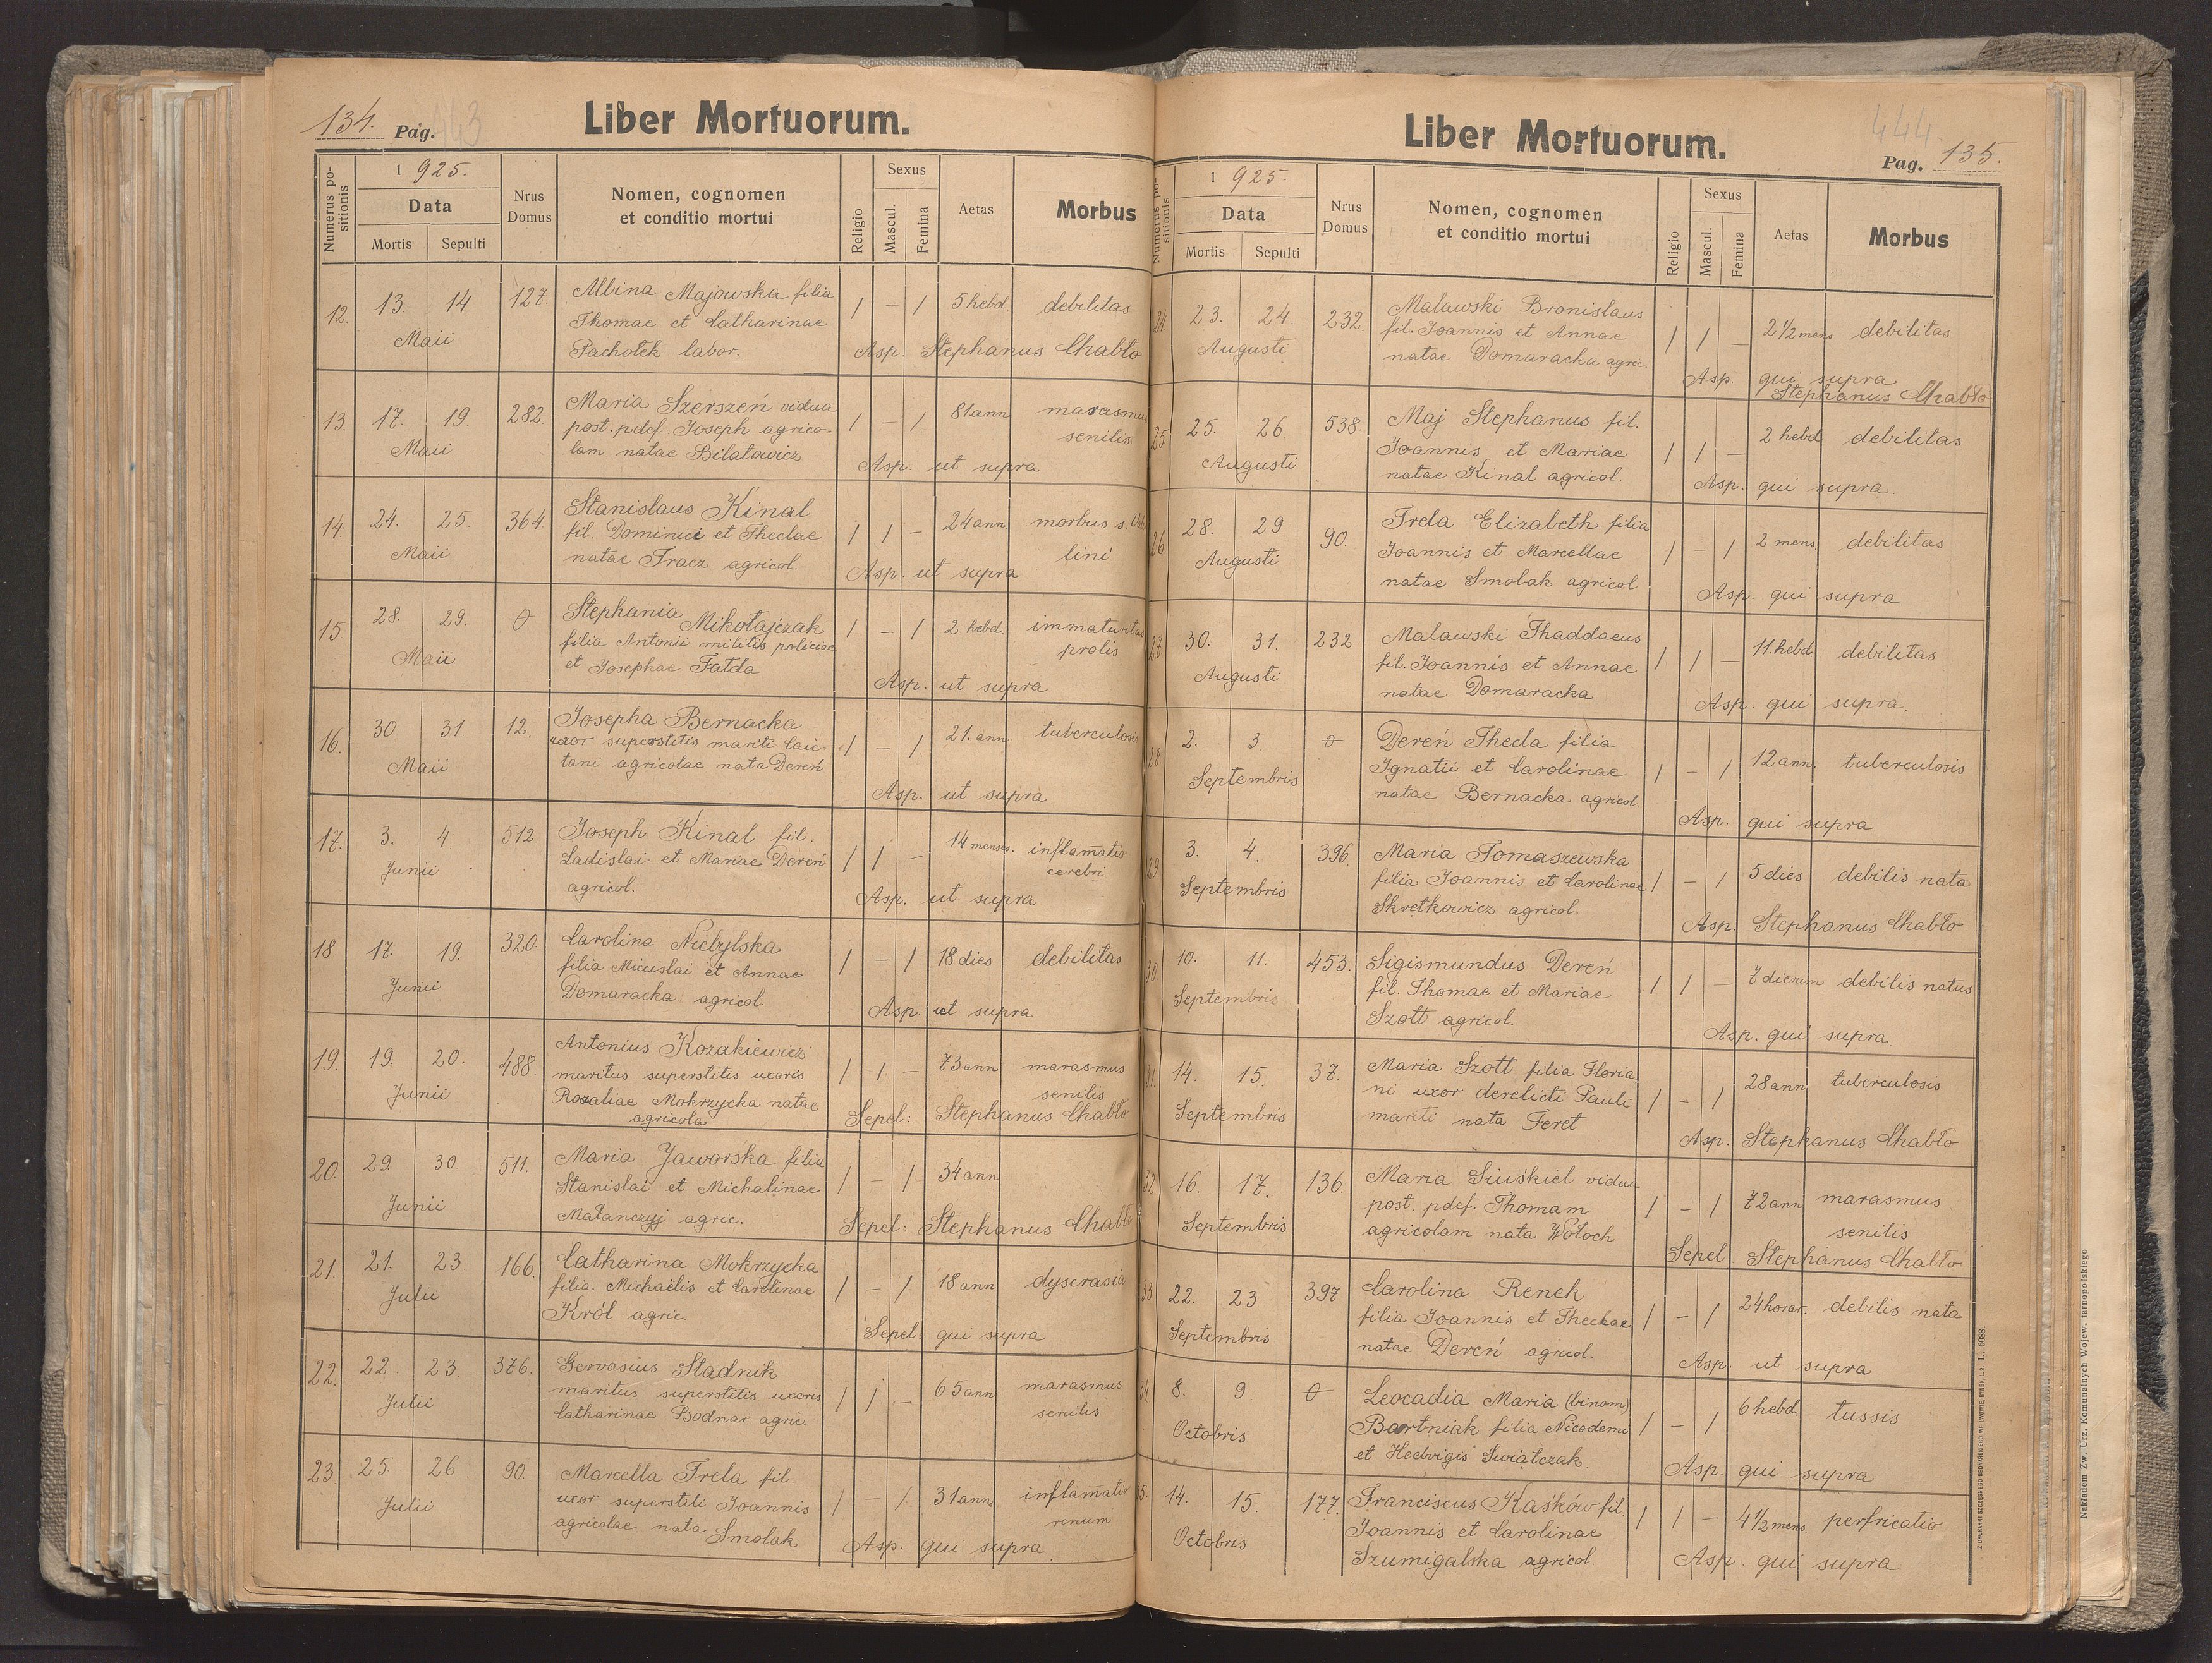 134. Pag. 443
Liber Mortuorum.
Numerus positionis
1 925.
Data
Mortis Sepulti
Nrus Domus
Nomen, cognomen
et conditio mortui
Religio
Sexus
Mascul. Femina
Aetas
Morbus
12. 13. 14 127. Albina Majowska filia / – / 5 hebd. debilitas
Maii Thomae et Catharinae
Pachołek labor. Asp. Stephanus Chabło
13. 17. 19. 282. Maria Szerszeń vidua / – / 81 ann marasmus
Maii post. pdef. Joseph agrico- senilis
lam natae Bilatowicz Asp. ut supra
14. 24. 25. 364 Stanislaus Kinal / / – 24 ann. morbus s.
Maii fil. Dominici et Theclae lini
natae Tracz agricol. Asp. ut supra
15 28. 29. 0 Stephania Mikołajczak / – / 2 hebd. immaturitas
Maii filia Antonii militis policiae prolis
et Josephae Fatda Asp. ut supra
16. 30. 31. 12. Josepha Bernacka / – / 21. ann tuberculosis
Maii uxor superstitis mariti Caie-
tani agricolae nata Dereń Asp. ut supra
17. 3. 4. 512 Joseph Kinal fil. / / – 14 menses. inflamatio
Junii Ladislai et Mariae Dereń cerebri
agricol. Asp. ut supra
18. 17. 19. 320. Carolina Niebylska / – / 18 dies debilitas
Junii filia Miecislai et Annae
Domaracka agricol. Asp. ut supra
19. 19. 20. 488. Antonius Kozakiewicz / / – 73 ann marasmus
Junii maritus superstitis uxoris senilis
Rozaliae Mokrzycka natae Sepel: Stephanus Chabło
agricola
20. 29. 30. 511. Maria Jaworska filia / – / 34 ann
Junii Stanislai et Michalinae
Małanczyj agric. Sepel: Stephanus Chabło
21. 21. 23. 166. Catharina Mokrzycka / – / 18 ann dyscrasia
Julii filia Michaëlis et Carolinae
Król agric. Sepel: qui supra
22. 22. 23. 376. Gervasius Stadnik / / – 65 ann marasmus
Julii maritus superstitis uxoris senilis
Catharinae Bodnar agric.
23. 25. 26 90. Marcella Trela fil. / – / 31 ann inflamatio
Julii uxor superstiti Joannis renum
agricolae nata Smolak Asp. qui supra
Liber Mortuorum.
444.
Pag. 135.
Numerus positionis
1 925.
Data
Mortis Sepulti
Nrus Domus
Nomen, cognomen
et conditio mortui
Religio
Sexus
Mascul. Femina
Aetas
Morbus
24 23. 24. 232 Malawski Bronislaus / / – 2 1/2 mens debilitas
Augusti fil. Joannis et Annae
natae Domaracka agric. Asp. qui supra
Stephanus Chabło
25 25. 26 538. Maj Stephanus fil. / / – 2 hebd. debilitas
Augusti Joannis et Mariae
natae Kinal agricol. Asp. qui supra.
26. 28. 29 90. Trela Elizabeth filia / – / 2 mens. debilitas
Augusti Joannis et Marcellae
natae Smolak agricol Asp. qui supra
27. 30. 31. 232 Malawski Thaddaeus / / – 11. hebd. debilitas
Augusti fil. Joannis et Annae
natae Domaracka Asp. qui supra.
28 2. 3 0 Dereń Thecla filia / – / 12 ann. tuberculosis
Septembris Ignatii et Carolinae
natae Bernacka agricol. Asp. qui supra
29 3. 4. 396. Maria Tomaszewska / – / 5 dies debilis nata
Septembris filia Joannis et Carolinae
Skrętkowicz agricol. Asp. Stephanus Chabło
30 10. 11. 453. Sigismundus Dereń / / – 7 dierum debilis natus
Septembris fil. Thomae et Mariae
Szott agricol. Asp. qui supra.
31. 14. 15. 37. Maria Szott filia Floria- / – / 28 ann tuberculosis
Septembris ni uxor derelicti Pauli
mariti nata Feret Asp. Stephanus Chabło
32 16. 17. 136. Maria Siuśkiel vidua / – / 72 ann marasmus
Septembris post. pdef. Thomam senilis
agricolam nata Wołoch Sepel Stephanus Chabło
33 22. 23 397 Carolina Renek / – / 24 horar. debilis nata
Septembris filia Joannis et Theclae
natae Dereń agricol. Asp. ut supra
34 8. 9. 0 Leocadia Maria (binom) / – / 6 hebd tussis
Octobris Bartniak filia Nicodemi
et Hedvigis Świątczak. Asp. qui supra
35. 14. 15. 177. Franciscus Kaśków fil. / / – 4 1/2 mens. perfricatio
Octobris Joannis et Carolinae
Szumigalska agricol. Asp. qui supra
Z DRUKARNI SZCZĘSNEGO BEDNARSKIEGO WE LWOWIE, RYNEK, L. 9. L. 6088.
Nakładem Zw. Urz. Komunalnych Wojew. tarnopolskiego